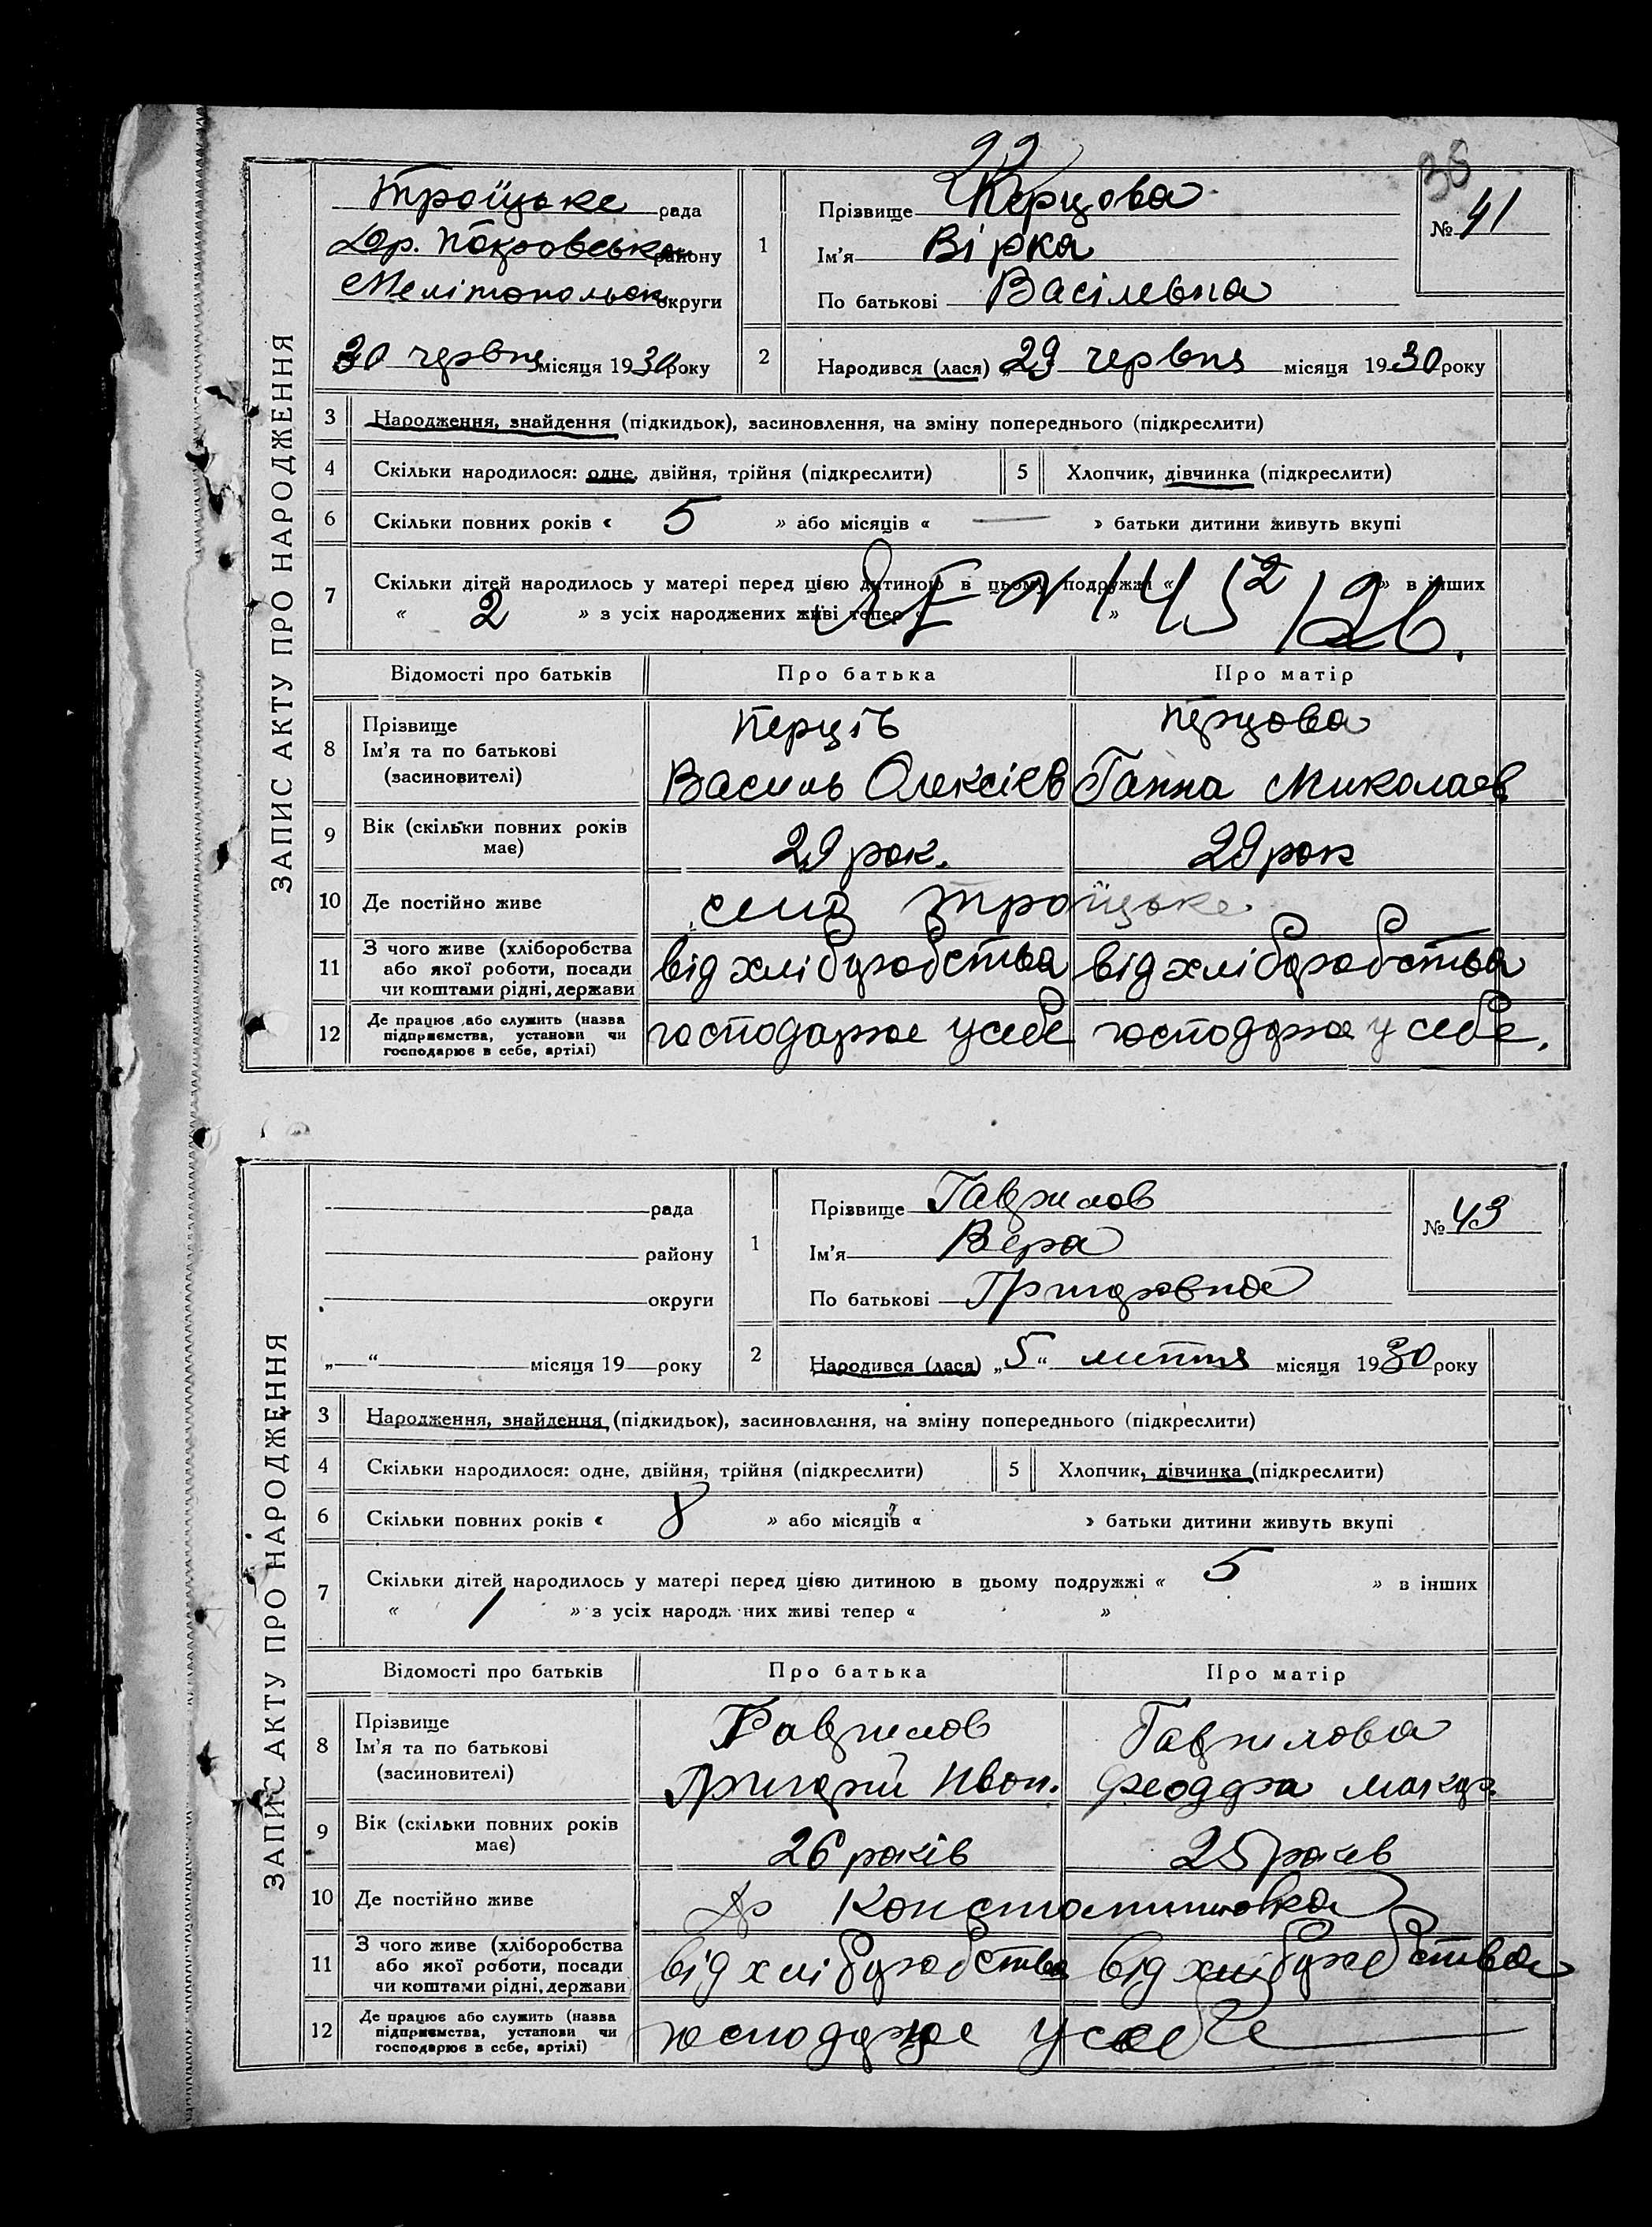 22
36
ЗАПИС АКТУ ПРО НАРОДЖЕННЯ
Троїцьке рада
Др. Покровськ району
Мелітопольск округи
30 червня місяця 1930 року
1
Прізвище Перцова
Ім'я Вірка
По батькові Васілевна
№ 41
2 Народився (лася) „29 червня місяця 1930 року
3 Народження, знайдення (підкидьок), засиновлення, на зміну попереднього (підкреслити)
4 Скільки народилося: одне, двійня, трійня (підкреслити) 5 Хлопчик, дівчинка (підкреслити)
6 Скільки повних років « 5 » або місяців « — » батьки дитини живуть вкупі
7 Скільки дітей народилось у матері перед цією дитиною в цьому подружжі « 2 » в інших
« 2 » з усіх народжених живі тепер « »
Відомості про батьків Про батька Про матір
8 Прізвище Перців Перцова
Ім'я та по батькові Василь Олексієв Ганна Миколаев
(засиновителі)
9 Вік (скільки повних років має) 29 рок. 29 рок
10 Де постійно живе село Троїцьке
11 З чого живе (хліборобства або якої роботи, посади чи коштами рідні, держави від хліборобства від хліборобства
12 Де працює або служить (назва підприємства, установи чи господарює в себе, артілі) господарює у себе господарює у себе.
ЗАПИС АКТУ ПРО НАРОДЖЕННЯ
рада
району
округи
„ “ місяця 19 року
1
Прізвище Гаврилов
Ім'я Вера
По батькові Григоровна
№ 43
2 Народився (лася) „5“ липня місяця 1930 року
3 Народження, знайдення (підкидьок), засиновлення, на зміну попереднього (підкреслити)
4 Скільки народилося: одне, двійня, трійня (підкреслити) 5 Хлопчик, дівчинка (підкреслити)
6 Скільки повних років « 8 » або місяців « » батьки дитини живуть вкупі
7 Скільки дітей народилось у матері перед цією дитиною в цьому подружжі « 5 » в інших
« 1 » з усіх народжених живі тепер « »
Відомості про батьків Про батька Про матір
8 Прізвище Гаврилов Гаврилова
Ім'я та по батькові Григорий Иван. Феодора Макар.
(засиновителі)
9 Вік (скільки повних років має) 26 років 25 років
10 Де постійно живе Константиновка
11 З чого живе (хліборобства або якої роботи, посади чи коштами рідні, держави від хліборобства від хліборобства
12 Де працює або служить (назва підприємства, установи чи господарює в себе, артілі) господарює у себе